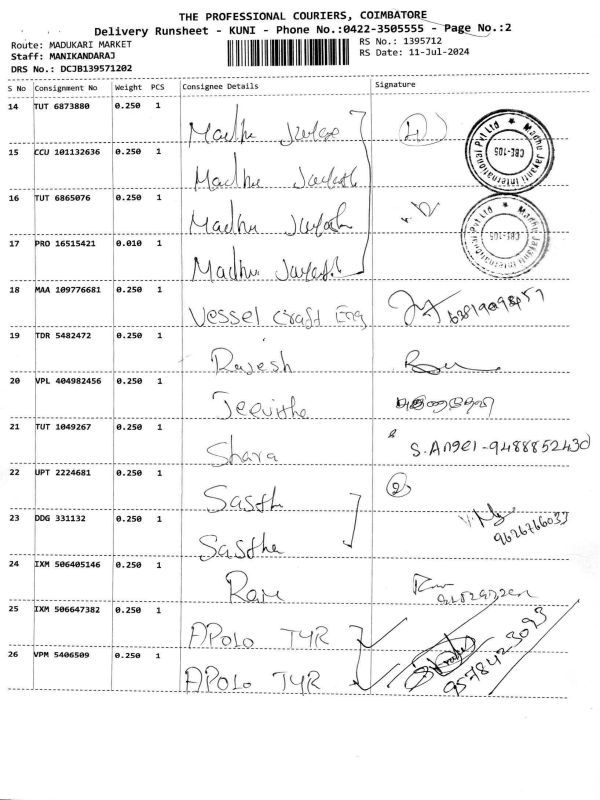 THE PROFESSIONAL COURIERS, COIMBATORE
Delivery Runsheet - KUNI - Phone No.:0422-3505555 - Page No.:2
Route: MADUKARI MARKET RS No.: 1395712
Staff: MANIKANDARAJ RS Date: 11-Jul-2024
DRS No.: DCJB139571202
S No Consignment No Weight PCS Consignee Details Signature
14 TUT 6873880 0.250 1 Madhu 4
Madhu Jayanti International Pvt Ltd ★ CBE-105
15 CCU 101132636 0.250 1 Madhu
16 TUT 6865076 0.250 1 Madhu
Madhu Jayanti International Pvt Ltd ★ CBE-105
17 PRO 16515421 0.010 1 Madhu
18 MAA 109776681 0.250 1 Vessel Craft Eng
19 TDR 5482472 0.250 1 Rajesh
20 VPL 404982456 0.250 1 Jeevitha
21 TUT 1049267 0.250 1 Shara S. Angel - 9488852430
22 UPT 2224681 0.250 1 Sasthe 2
23 DDG 331132 0.250 1 Sasthe 9626766033
24 IXM 506405146 0.250 1 Ram
25 IXM 506647382 0.250 1 APOLO TYR
26 VPM 5406509 0.250 1 APOLO TYR 9578423093